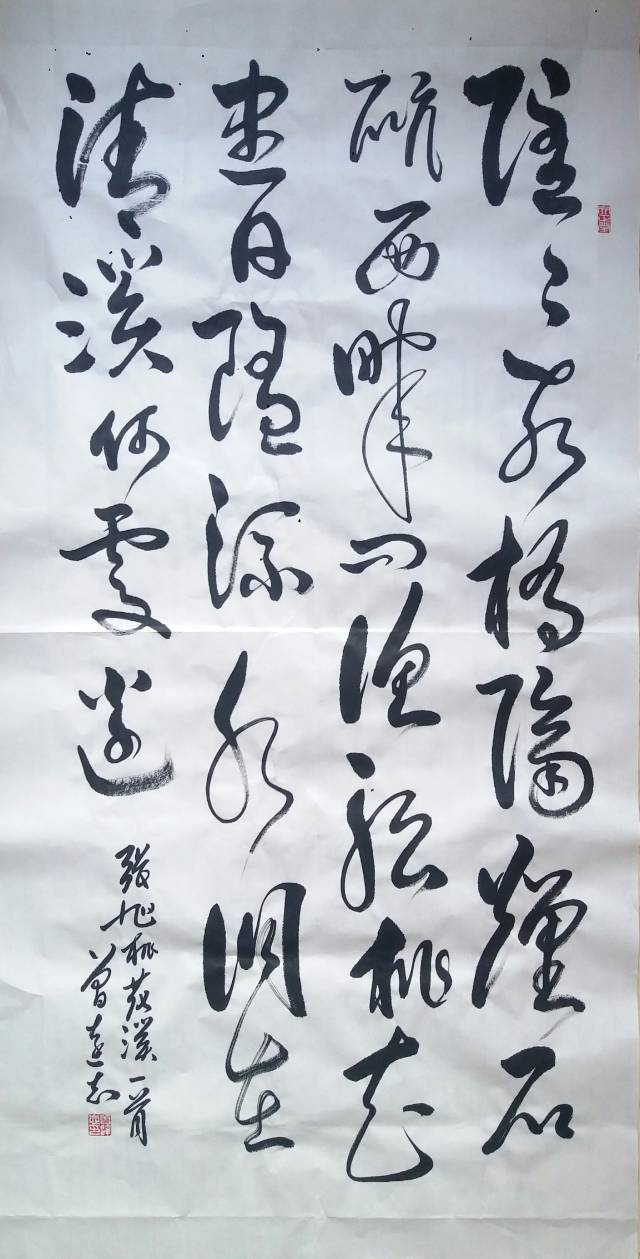 隱〻飛橋隔煙石
矶西畔问渔船桃花
尽日隨流水洞在
清溪何處邊
張旭桃花溪一首
曾